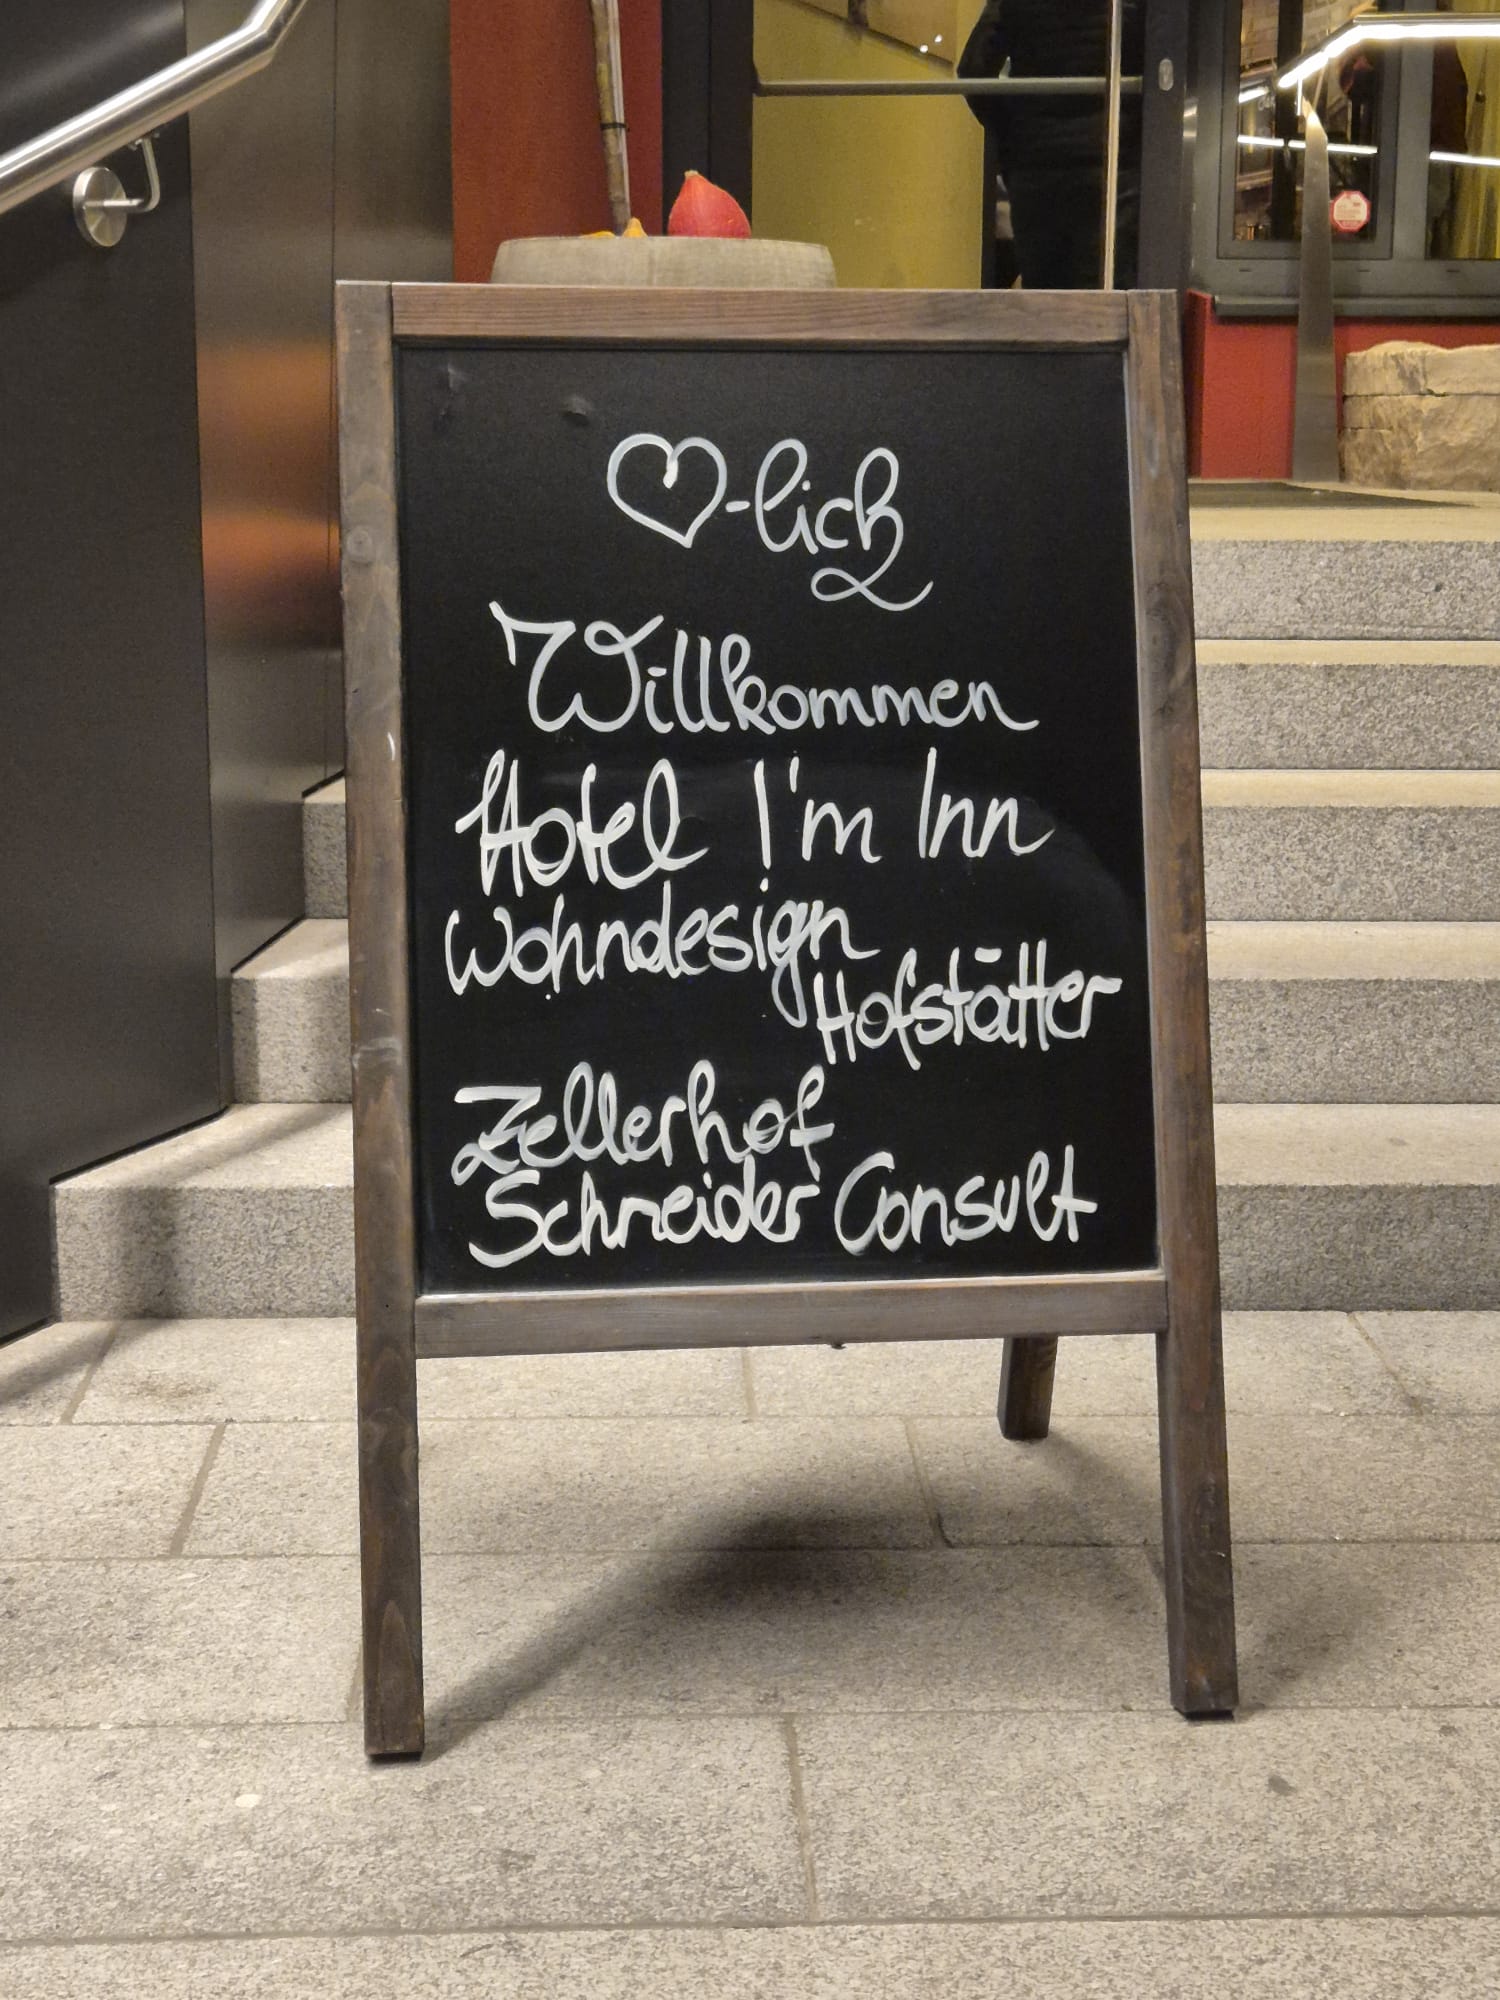 ♡-lich
Willkommen
Hotel I'm Inn
Wohndesign
Hofstätter
Zellerhof
Schneider Consult